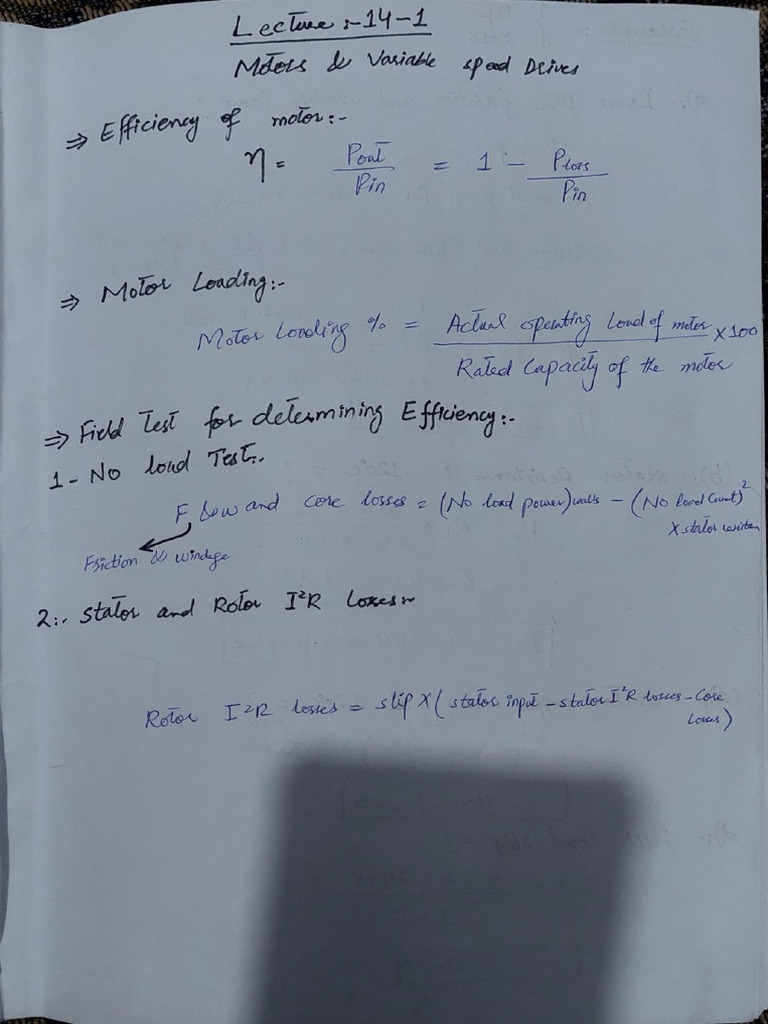 Lecture :-14-1
Motors & Variable speed Drives
⇒ Efficiency of motor:-
η = Pout/Pin = 1 - Ploss/Pin
⇒ Motor Loading:-
Motor Loading % = Actual operating Load of motor / Rated Capacity of the motor ×100
⇒ Field Test for determining Efficiency:-
1- No load Test:-
F & w and core losses = (No load power) watts - (No load Current)²
× stator resisten
Friction & windage
2:- Stator and Rotor I²R Losses:-
Rotor I²R losses = slip X (stator input - stator I²R losses - Core
Losses)